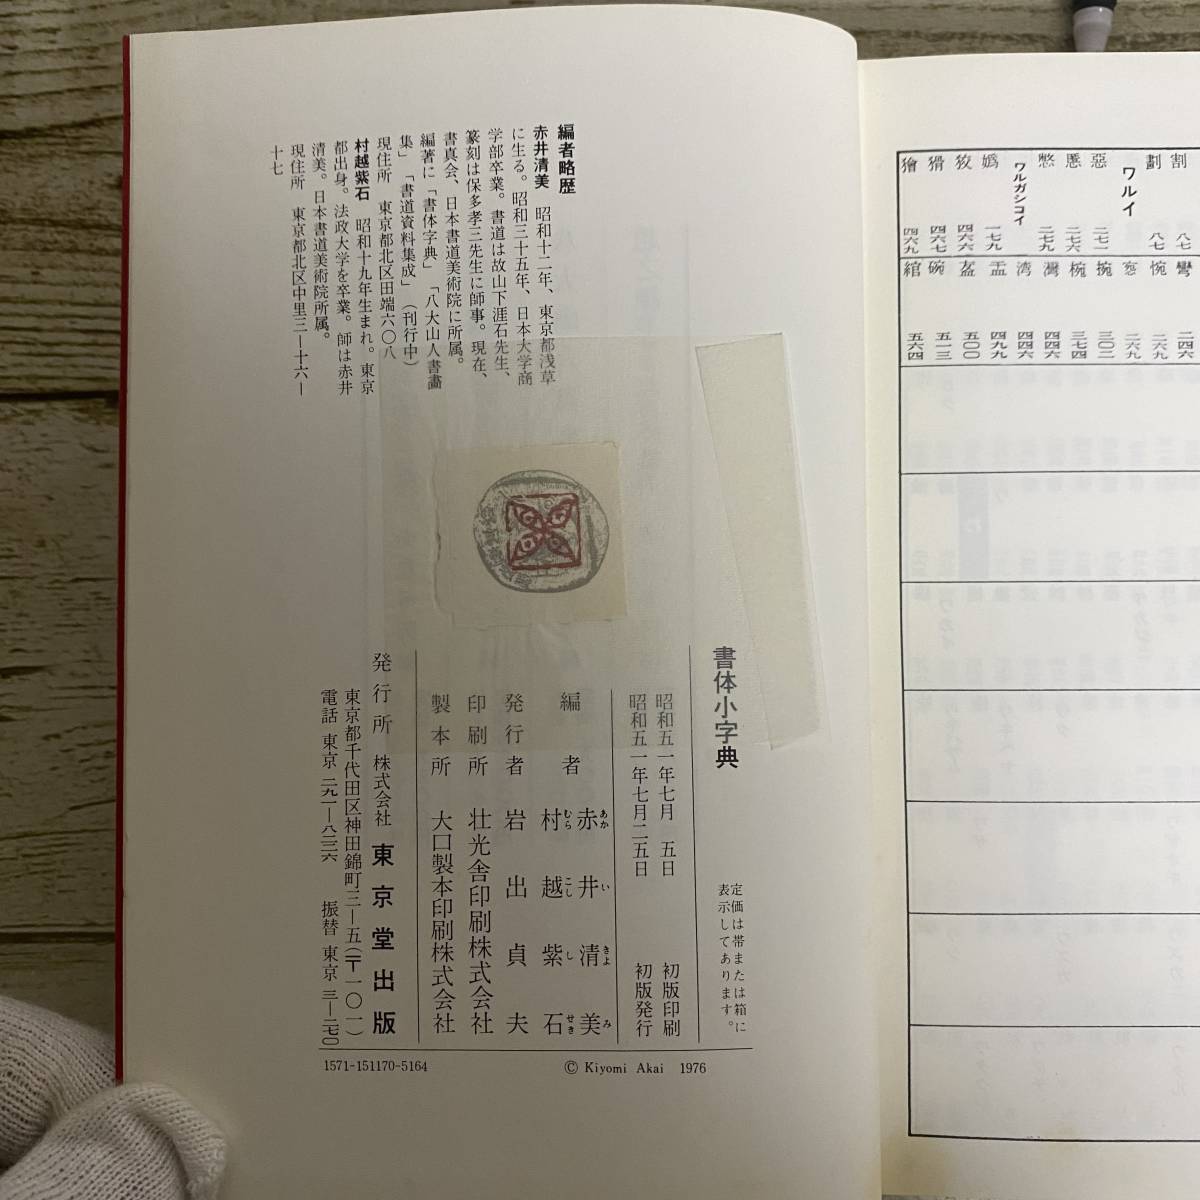 割 八七
劃 八七
ワルイ
惡 二七一
慝 二七六
憋 二七九
ワルガシコイ
嬀 一七九
狡 四六六
猾 四六七
獪 四六九
彎 二四六
惋 二六九
窓 二六九
捥 三〇二
椀 三七四
灣 四四六
湾 四四六
盂 四九九
盌 五〇〇
碗 五一三
綰 五六四
編者略歴
赤井清美 昭和十二年、東京都浅草
に生る。昭和三十五年、日本大学商
学部卒業。書道は故山下涯石先生、
篆刻は保多孝三先生に師事。現在、
書真会、日本書道美術院に所属。
編著に「書体字典」「八大山人書畵
集」「書道資料集成」(刊行中)
現住所 東京都北区田端六〇八
村越紫石 昭和十九年生まれ。東京
都出身。法政大学を卒業。師は赤井
清美。日本書道美術院所属。
現住所 東京都北区中里三ー十六ー
十七
定価は帯または箱に
表示してあります。
書体小字典
昭和五一年七月 五日 初版印刷
昭和五一年七月二五日 初版発行
編者 赤井清美
あかいきよみ
村越紫石
むらこししせき
発行者 岩出貞夫
印刷所 壮光舎印刷株式会社
製本所 大口製本印刷株式会社
発行所 株式会社 東京堂出版
東京都千代田区神田錦町三ー五(〒一〇一)
電話 東京 二九一ー八二二六 振替 東京 三ー二七〇
1571-151170-5164
© Kiyomi Akai 1976